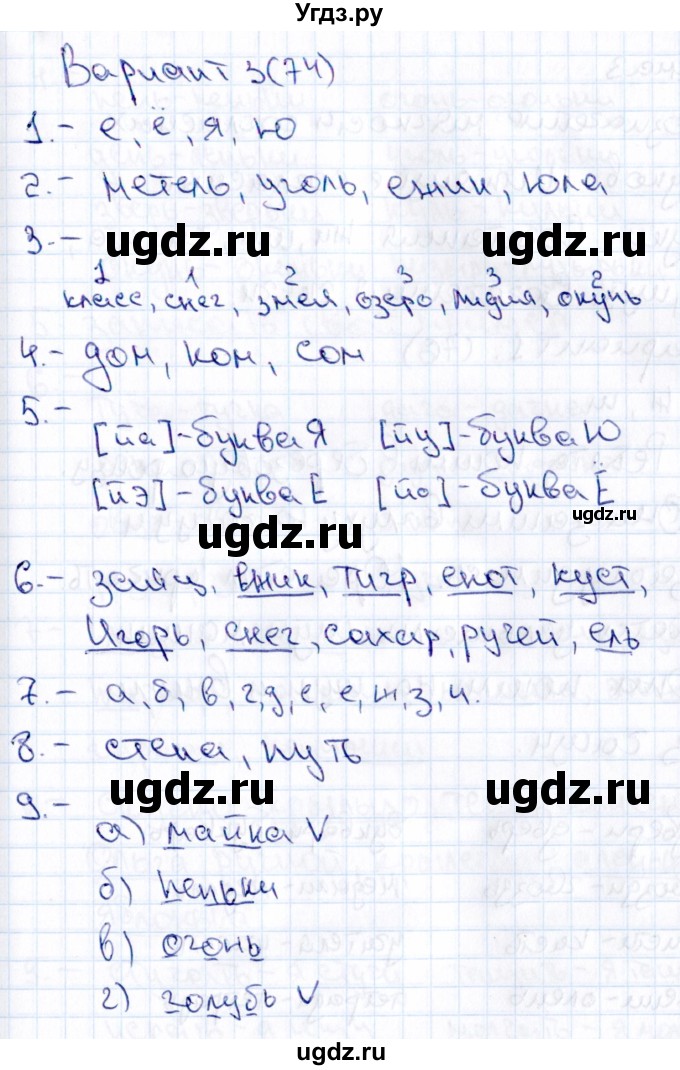 Угдз.ру
Вариант 3(74)
1.- е, ё, я, ю
2.- метель, уголь, ежик, юла
3.-
ugdz.ru ugdz.ru
1 1 2 3 3 2
класс, снег, змея, озеро, лидия, окунь
4.- дом, ком, сом
5.-
[йа]-буква Я [йу]-буква Ю
[йэ]-буква Е [йо]-буква Ё
ugdz.ru
ugdz.ru
6.- заяц, ежик, тигр, енот, куст,
Игорь, снег, сахар, ручей, ель
7.- а, б, в, г, д, е, е, ж, з, и.
8.- стена, путь
ugdz.ru ugdz.ru
9.-
а) майка V
б) пеньки
в) огонь
г) голубь V
ugdz.ru